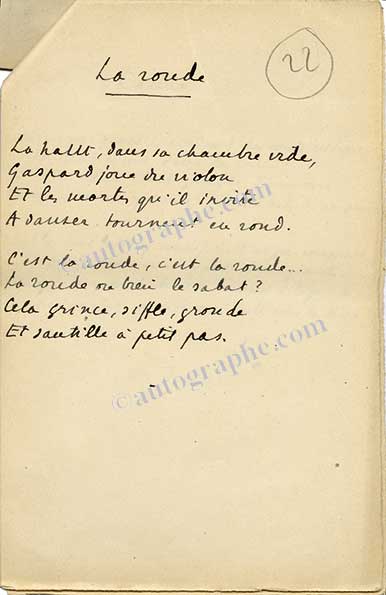 La ronde
22
La haut, dans sa chambre vide,
Gaspard joue du violon
Et les mortes qu'il invite
A danser tournent en rond.
C'est la ronde, c'est la ronde...
La ronde ou bien le sabat ?
Cela grince, siffle, gronde
Et sautille à petit pas.
©autographe.com
©autographe.com